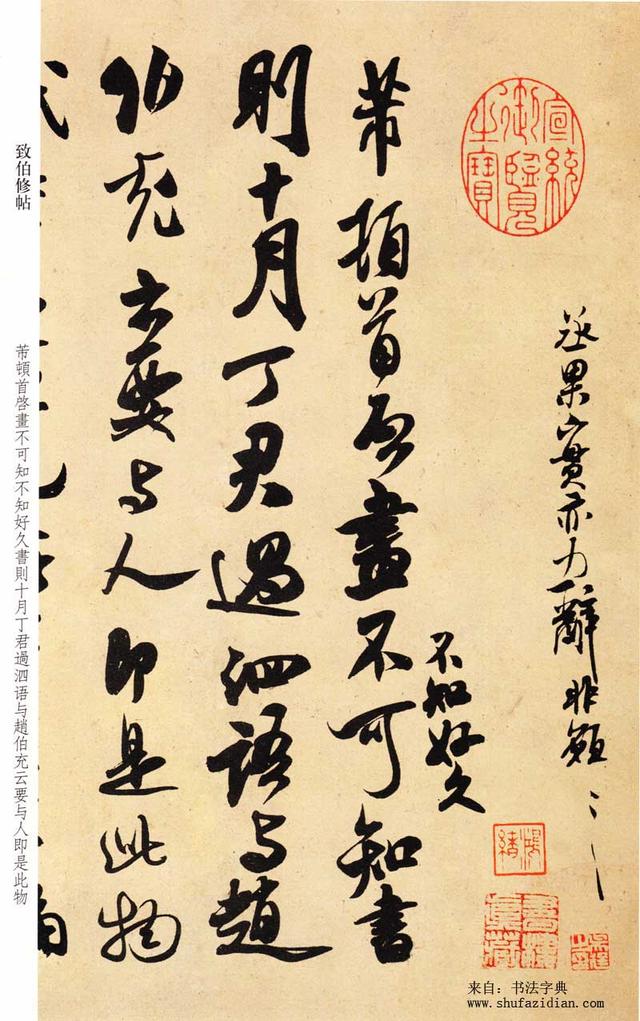 宣統御覽之寶
丞果實亦力辭非願〻
不知好久
芾頓首啓畫不可知書
則十月丁君過泗語与趙
伯充云要与人即是此物
致伯修帖
芾頓首啓畫不可知不知好久書則十月丁君過泗语与趙伯充云要与人即是此物
来自：书法字典
www.shufazidian.com